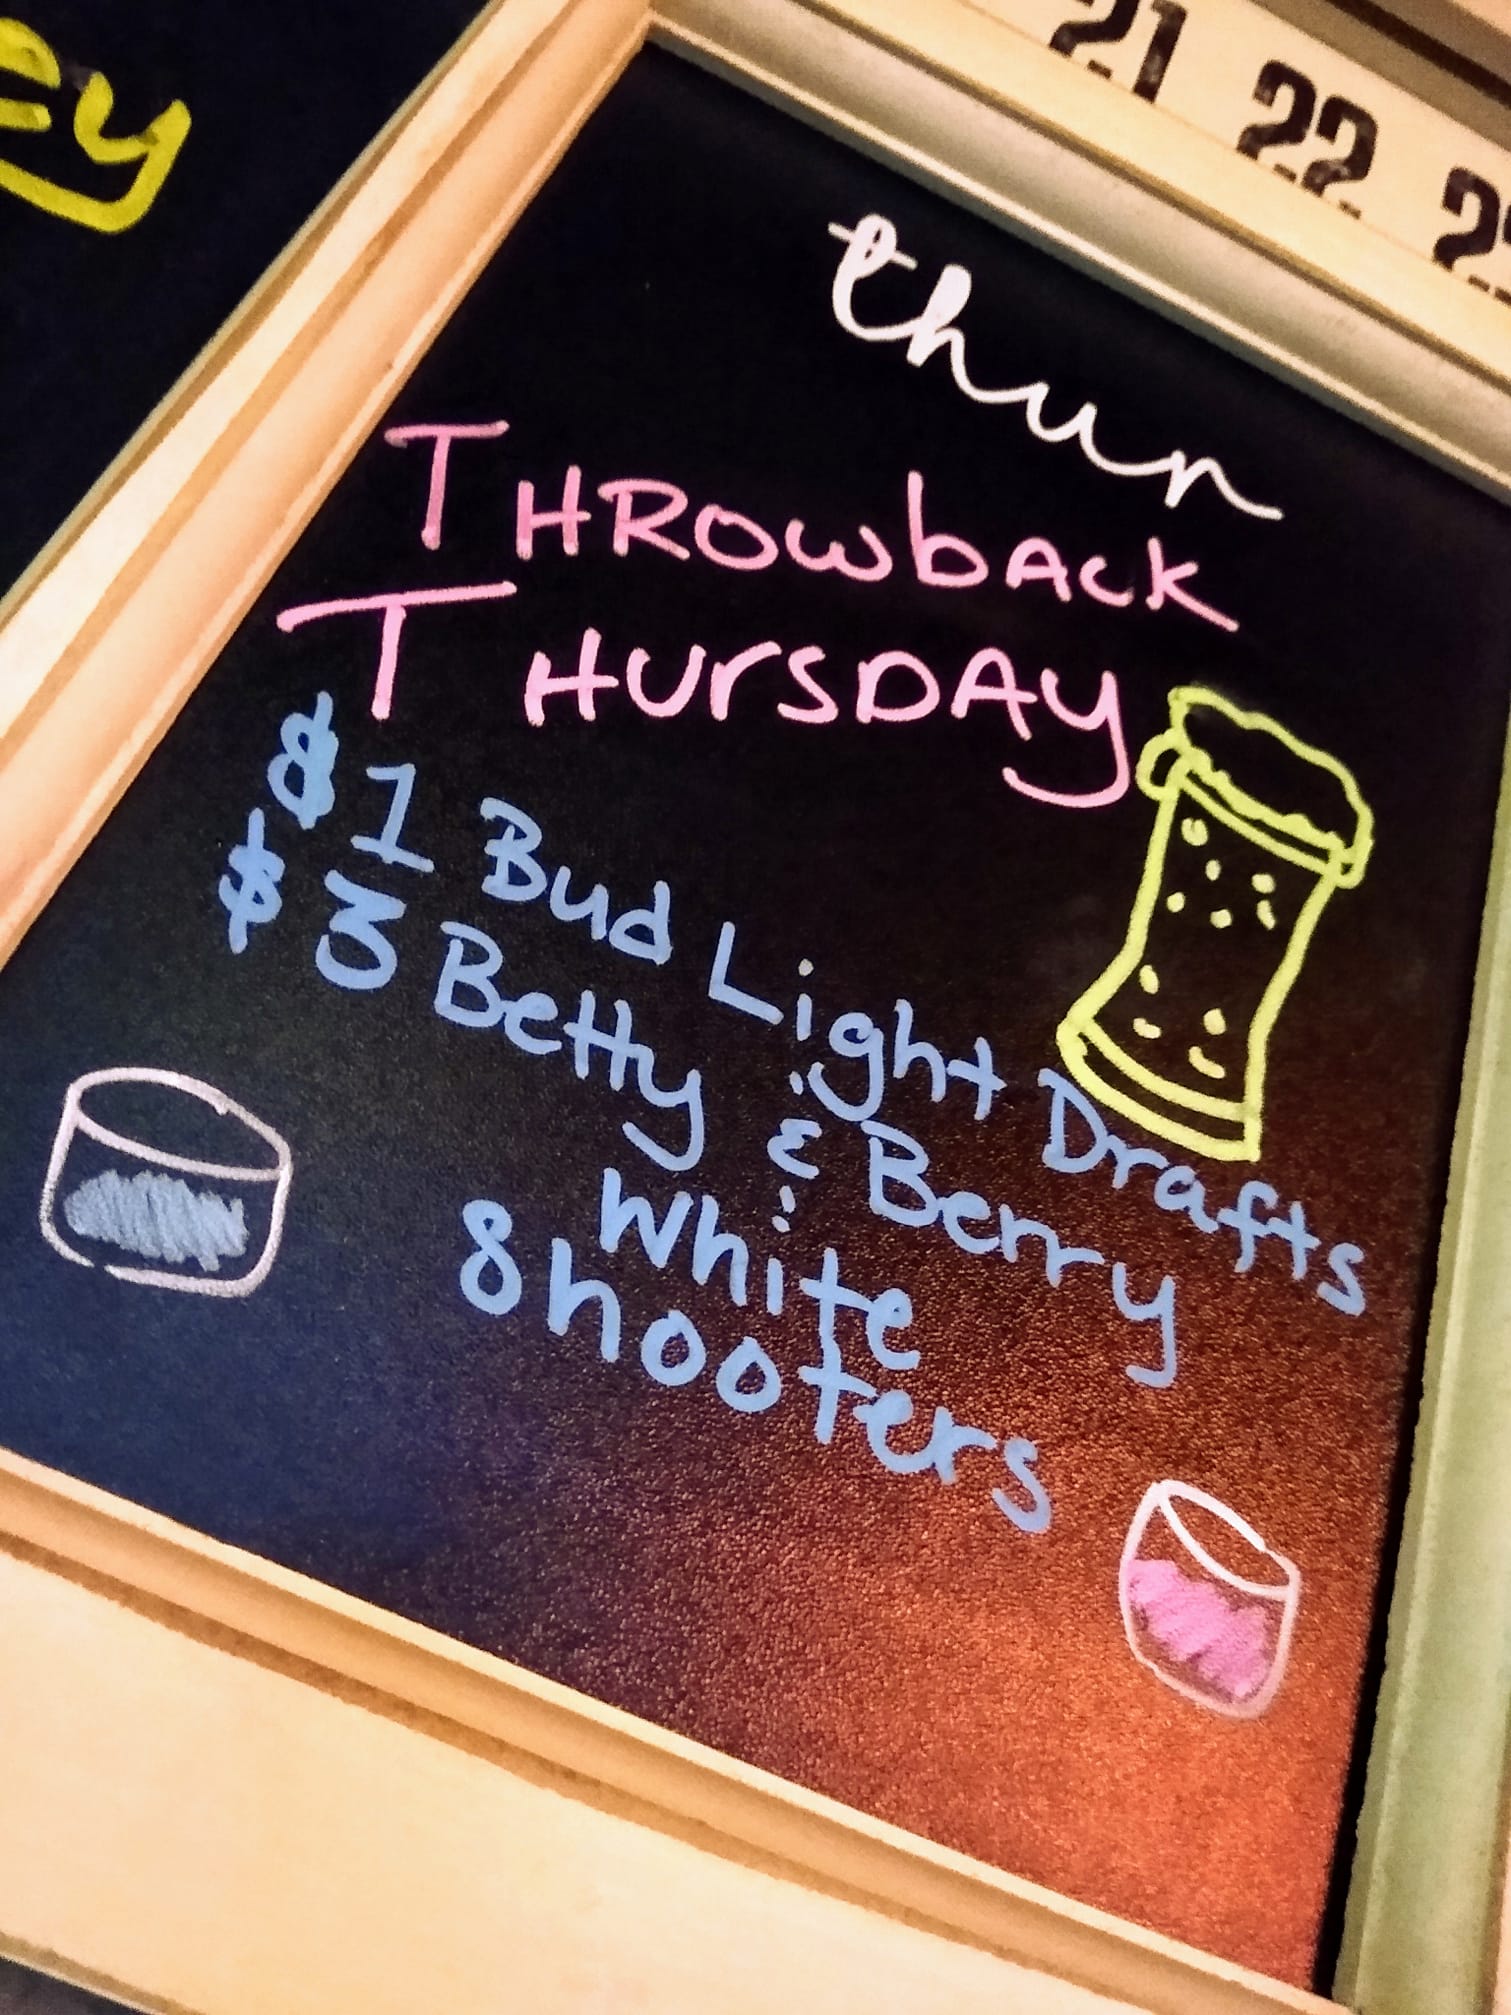 21 22
thur
THROWbACK
THUrSDAY
$1 Bud Light Drafts
$3 Betty & Berry
White
Shooters
ey